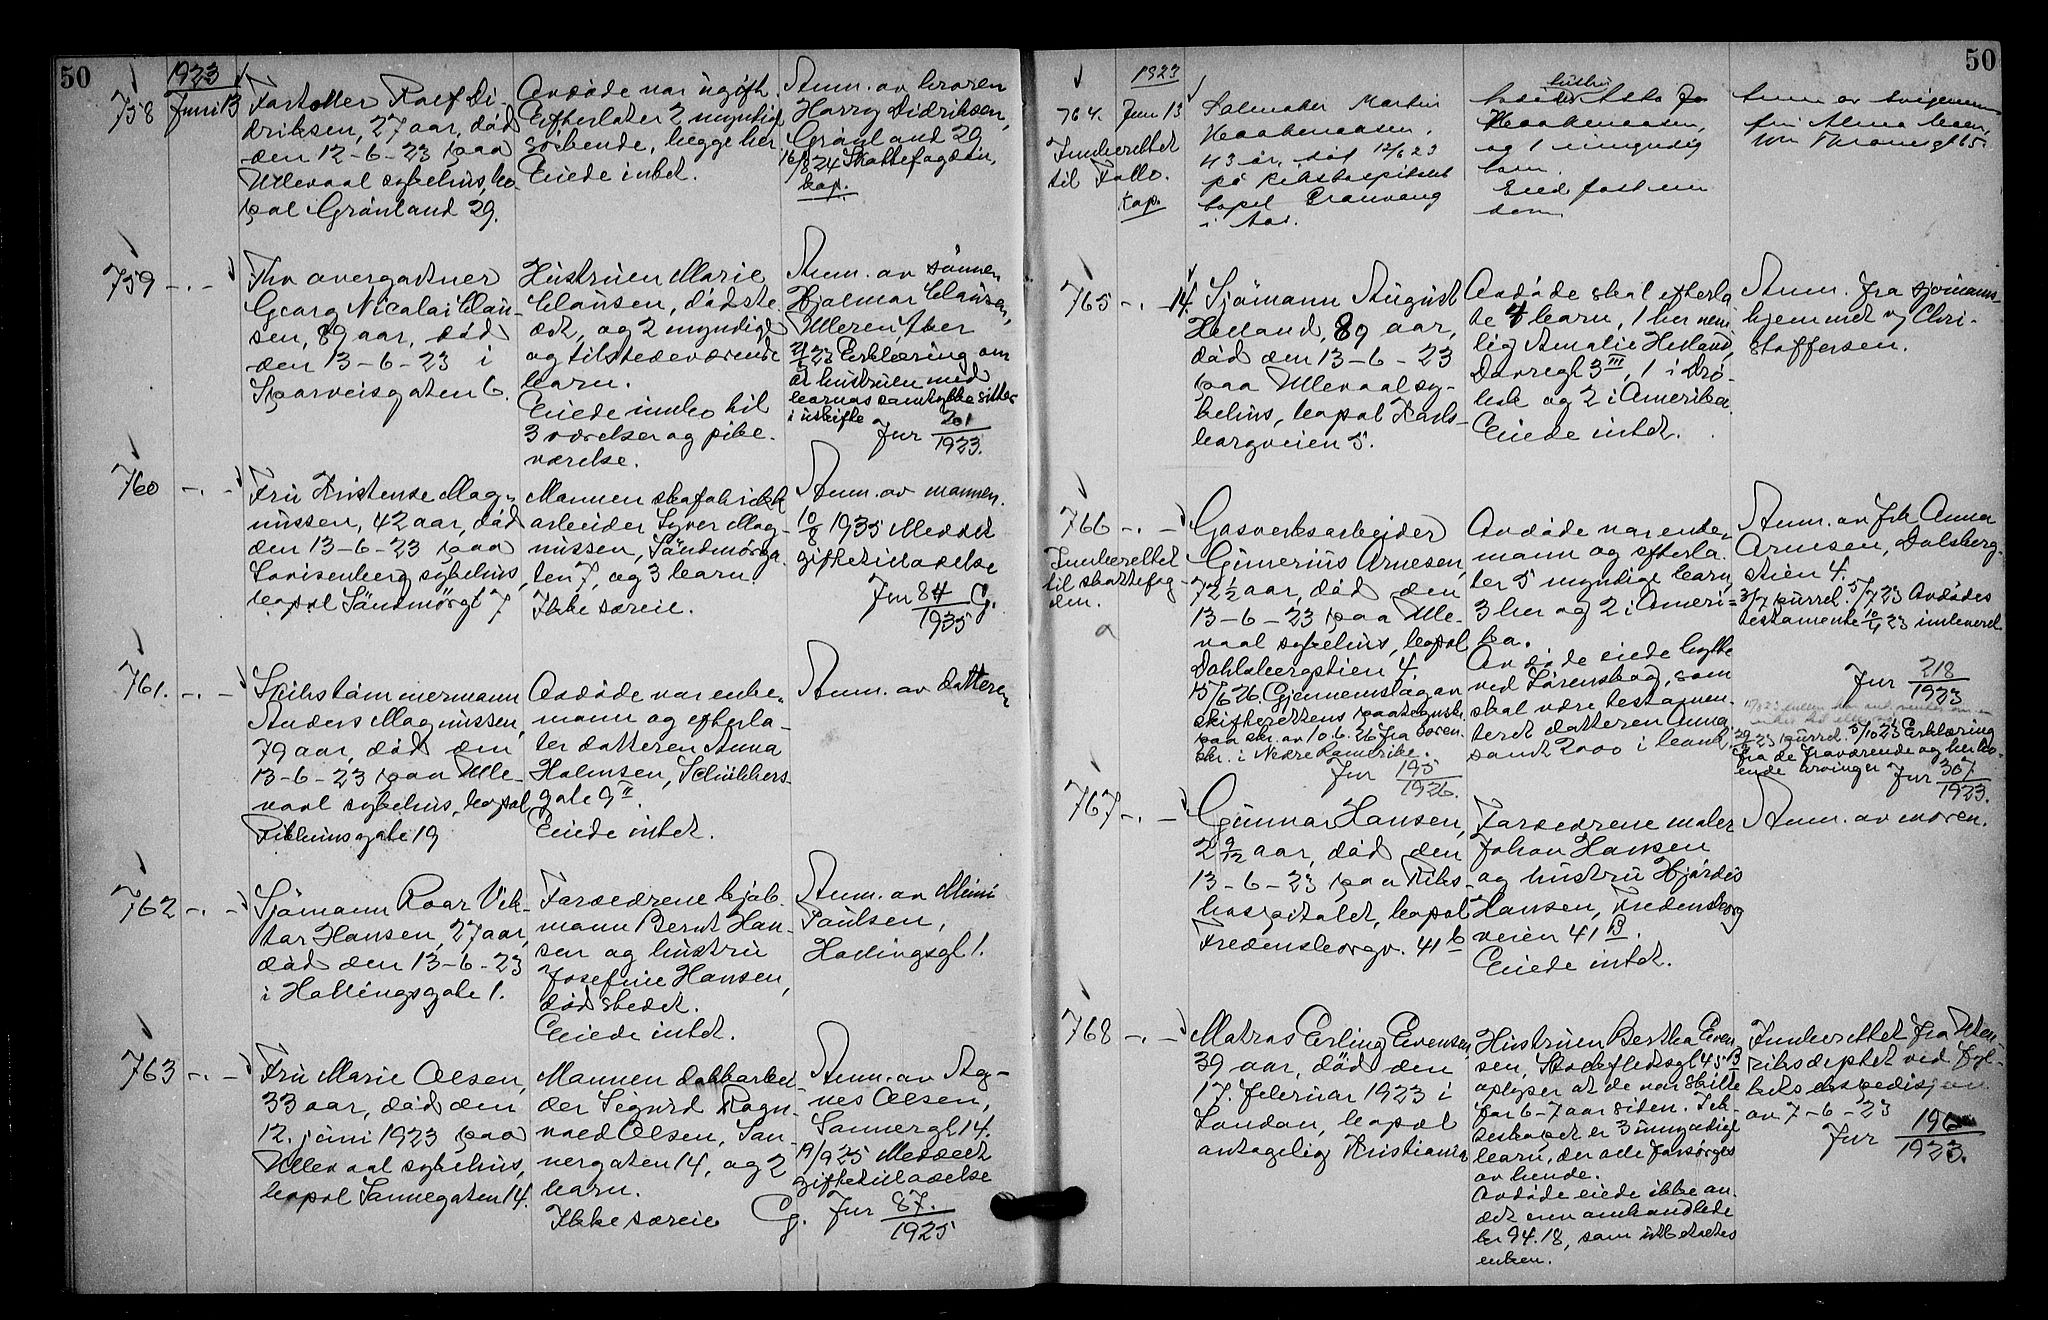 50
1923
758
Juni 13
Fartøller Ralf Di-
driksen, 27 aar, død
den 12-6-23 paa
Ullevaal sykehus, bo-
pæl Grønland 29.
Avdøde var ugift.
Efterlater 2 myndige
søskende, begge her.
Eiede intet.
Anm. av broren
Harry Didriksen,
Grønland 29
16/8 24 Skattefogden,
kop.
759 -.-
Fhv overgartner
Georg Nicolai Clau-
sen, 89 aar, død
den 13-6-23 i
Sporveisgaten 6.
Hustruen Marie
Clausen, dødste-
det, og 2 myndige
og tilstedeværende
barn.
Eiede innbo til
3 værelser og pike-
værelse.
Anm. av sønnen
Hjalmar Clausen,
Ulleren, Aker
23 Erklæring om
at hustruen med
barnas samtykke sitter
i uskifte
Jnr 201
1923.
760 -.-
Fru Kristense Mag-
nussen, 42 aar, død
den 13-6-23 paa
Lovisenberg sykehus,
bopæl Søndmørgt 7
Mannen skofabrikk
arbeider Syver Mag-
nussen, Søndmørga-
ten 7, og 3 barn.
Ikke særeie.
Anm. av mannen.
10/8 1935 Meddelt
giftetilladelse
Jnr 84 G.
1935
761. -.-
Skibstømmermann
Anders Magnussen,
79 aar, død den
13-6-23 paa Ulle-
vaal sykehus, bopæl
gate 19
Avdøde var enke-
mann og efterla-
ter datteren Anna
Holmsen, Schübelers-
gate 9 II.
Eiede intet.
Anm. av datteren
762 -.-
Sjømann Roar Vik-
tor Hansen, 27 aar,
død den 13-6-23
i Hallingsgate 1.
Forældrene kjøb-
mann Bernt Han-
sen og hustru
Josefine Hansen,
dødstedet.
Eiede intet.
Anm. av Mimi
Paulsen,
Hallingsgt 1.
763 -.-
Fru Marie Olsen,
33 aar, død den
12. juni 1923 paa
Ullevaal sykehus,
bopæl Sannergaten 14.
Mannen dokkarbei-
der Sigurd Ragn-
vald Olsen, San-
nergaten 14, og 2
barn.
Ikke særeie
Anm. av Ag-
nes Olsen,
Sannergt 14.
19/9 25 Meddelt
giftetilladelse
G. Jnr 87.
1925
50
1923
764. Juni 13
Innberettet
til Follo.
Kop.
Salmaker Martin
Haakenaasen,
43 år, død 12/6 23
på Rikshospitalet
bopel Granvang
i Aas.
hustru
Haakenaasen,
og 1 umyndig
barn.
Eied fast eien
dom
Anm av svigerinnen
frk Alma
65
765 -.- 14.
Sjømann August
Helland, 89 aar,
død den 13-6-23
paa Ullevaal sy-
kehus, bopæl Karls-
borgveien 5.
Avdøde skal efterla-
te 4 barn, 1 her nem-
lig Amalie Helland,
Dovregt 3 III, 1 i Drø-
bak og 2 i Amerika.
Eiede intet.
Anm. fra sjømanns-
hjemmet v/ Chri-
stoffersen.
766 -.-
Innberettet
til skattefog-
den.
a
Gasverksarbeider
Gunerius Arnesen,
72½ aar, død den
13-6-23 paa Ulle-
vaal sykehus, bopæl
Dahlsbergstien 4.
15/6 26. Gjennemslag av
skifterettens paategnels
paa skr. av 10.6.26 fra Soren-
skr. i Nedre Romerike.
Jnr 195
1926.
Avdøde var enke-
mann og efterla-
ter 5 myndige barn,
3 her og 2 i Ameri-
ka.
Avdøde eiede hytte
ved Lørenskog, som
skal være testamen-
teret datteren Anna
samt 2000 i bank.
Anm. av frk Anna
Arnesen, Dalsberg-
stien 4.
3/7 purret. 5/7 23 Avdødes
testamente 23 innleveret
Jnr 218
1923
23 purret. 5/10 23 Erklæring
fra de fraværende og herbo-
ende arvinger Jnr 307
1923.
767 -.-
Gunnar Hansen,
2 9/12 aar, død den
13-6-23 paa Riks-
hospitalet, bopæl
Fredensborgv. 41 b
Forældrene maler
Johan Hansen
og hustru Hjørdis
Hansen, Fredensborg
veien 41 B.
Eiede intet.
Anm. av moren.
768 -.-
Matros Erling Evensen,
39 aar, død den
17. februar 1923 i
London, bopæl
antagelig Kristiania
Hustruen Bertha Even-
sen, 45 B
oplyser at de var skilte
for 6-7 aar siden. I ek-
teskapet er 3 umyndige
barn, der alle forsørges
av hende.
Avdøde eiede ikke an-
det enn omhandlede
kr 94.18, som utbetaltes
enken.
Innberettet fra Uten-
riksdeptet ved
ekspedisjon
av 7-6-23
Jnr 196
1923.